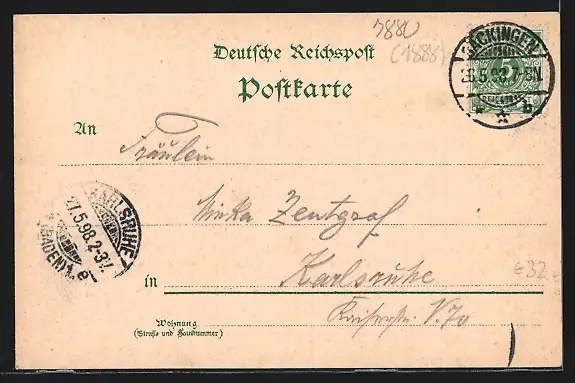 7880
(1888)
Deutsche Reichspost
Postkarte
SÄCKINGEN
26.5.98.7-8N.
* b
5
An
Fräulein
Minka Zentgraf
KARLSRUHE
27.5.98.2-3V.
(BADEN) 1. e
in Karlsruhe
Kaiserstr.
Wohnung
(Straße und Hausnummer)
€32